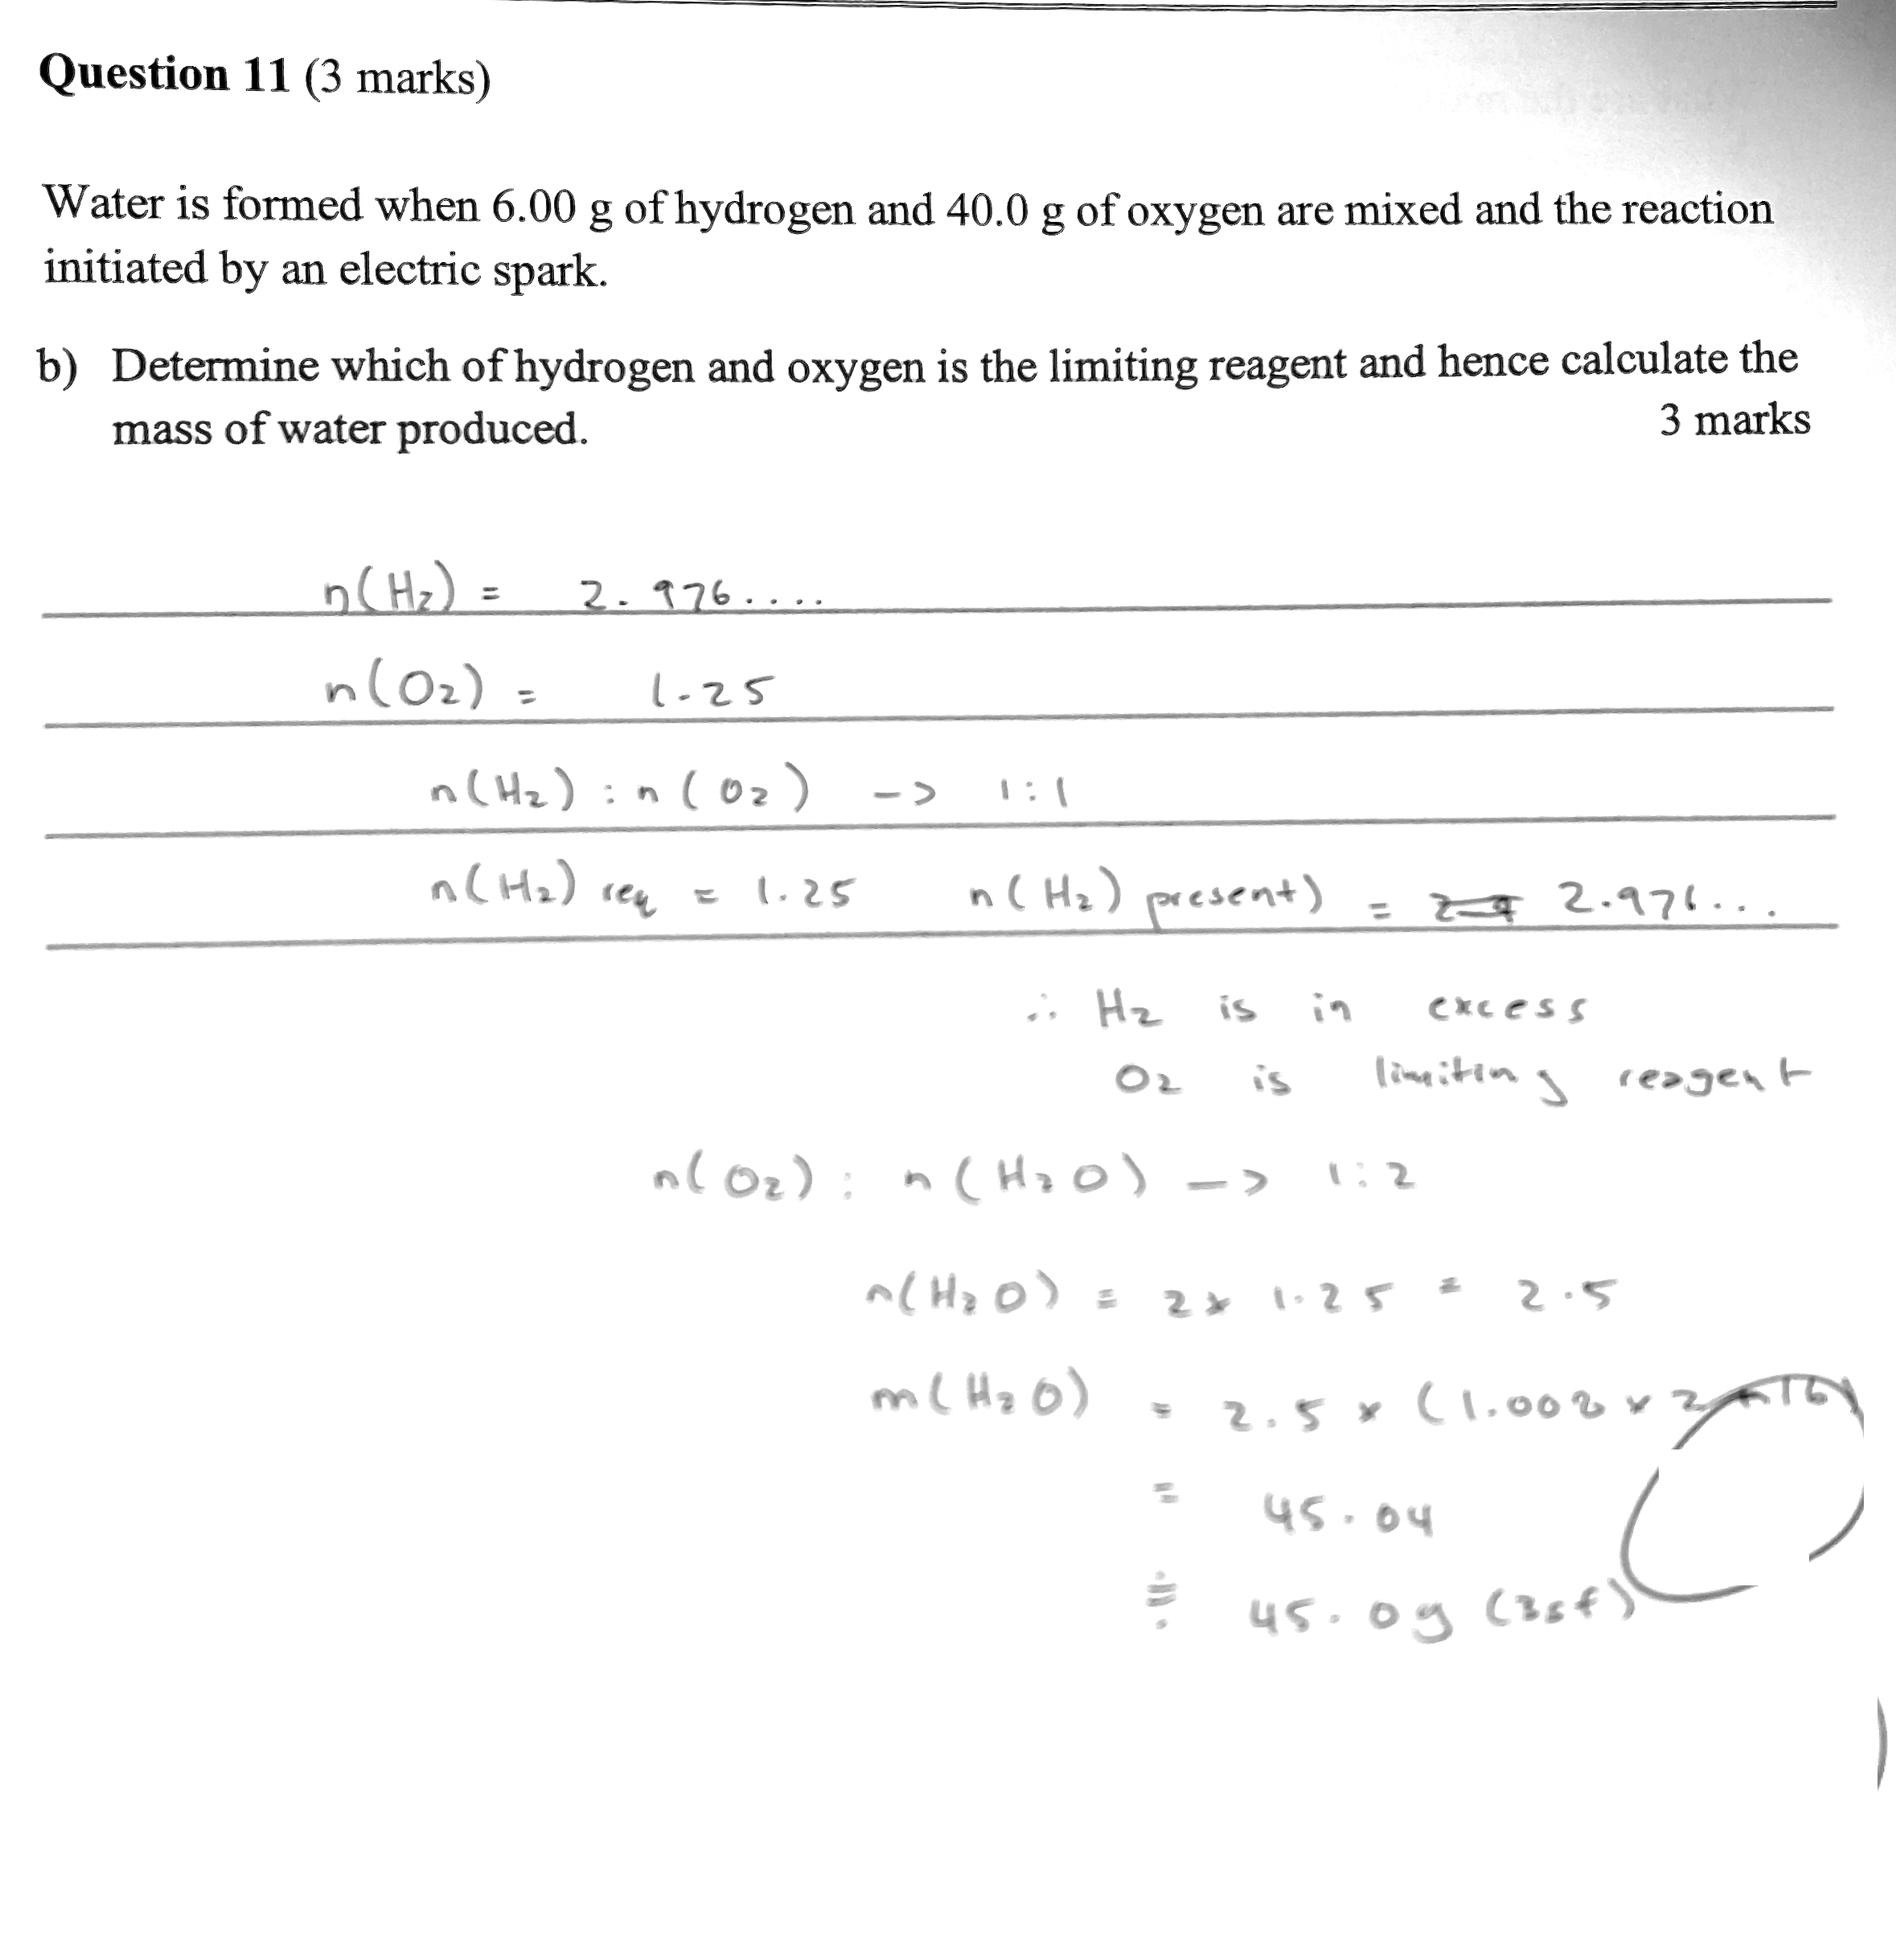 Question 11 (3 marks)
Water is formed when 6.00 g of hydrogen and 40.0 g of oxygen are mixed and the reaction
initiated by an electric spark.
b) Determine which of hydrogen and oxygen is the limiting reagent and hence calculate the
mass of water produced. 3 marks
n(H₂) = 2.976....
n(O₂) = 1.25
n(H₂) : n(O₂) -> 1:1
n(H₂) req = 1.25 n(H₂) present) = 2.976...
∴ H₂ is in excess
O₂ is limiting reagent
n(O₂) : n(H₂O) -> 1:2
n(H₂O) = 2 × 1.25 = 2.5
m(H₂O) = 2.5 × (1.008 × 2 + 16)
= 45.04
≑ 45.0g (3sf)